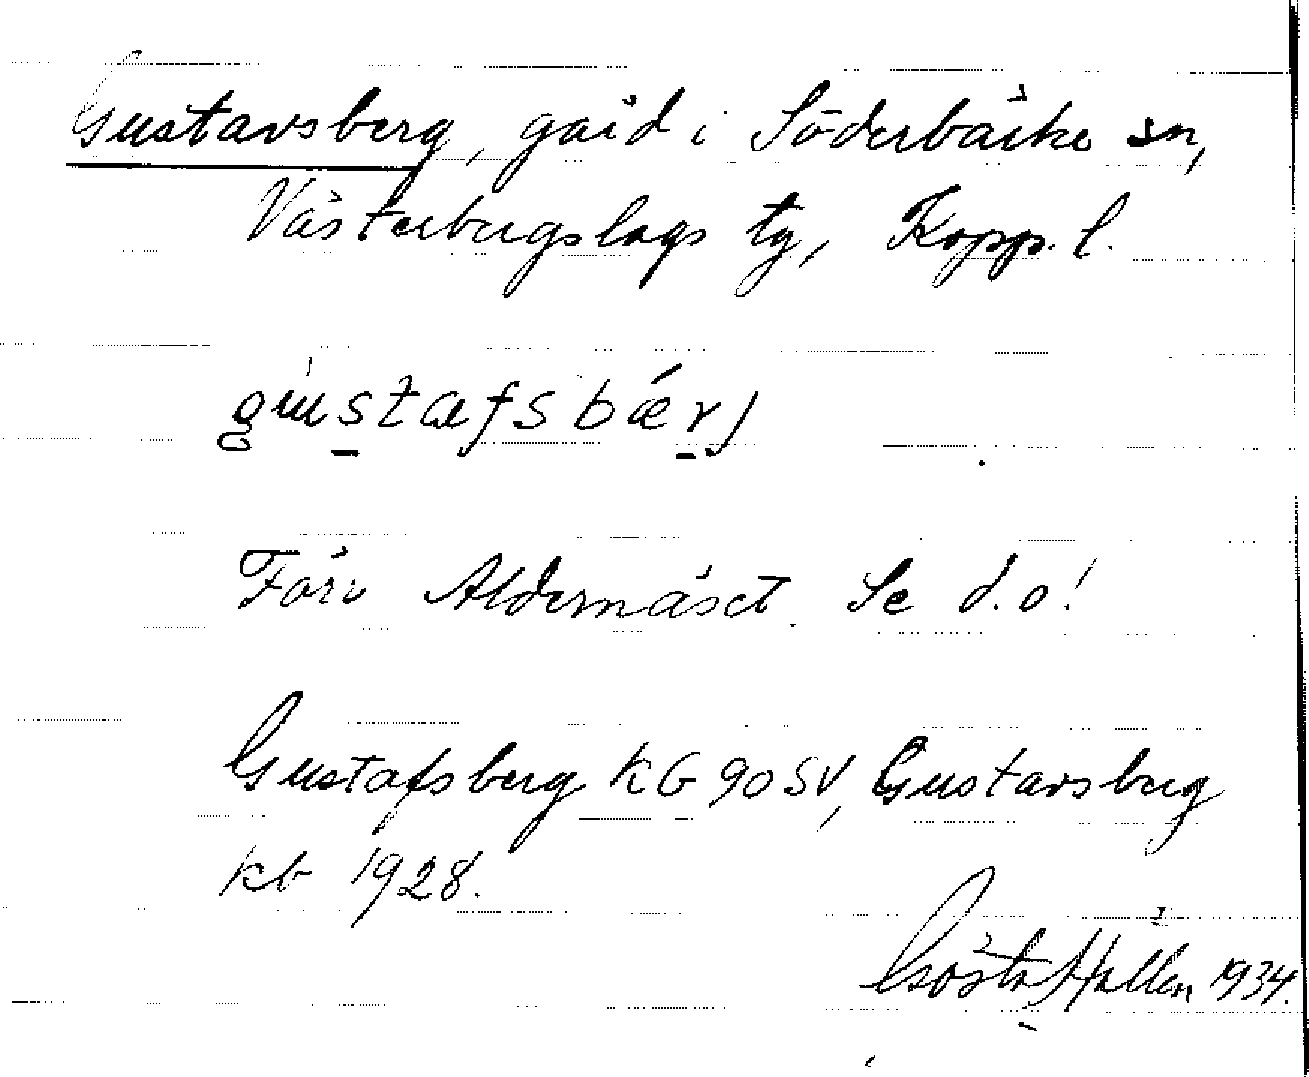 Gustavsberg, gård i Söderbärke sn,
Västerbergslags tg, Kopp. l.
gùstafsbǽrj
Förr Aldernäset. Se d.o!
Gustafsberg KG 90 SV, Gustavsberg
kb 1928.
Gösta Hallén 1934.